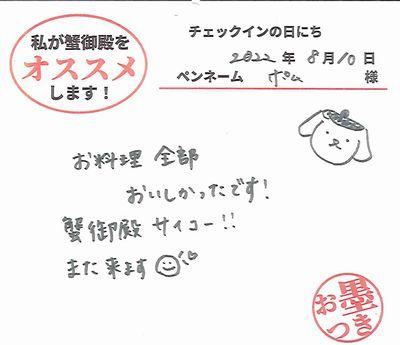 私が蟹御殿を
オススメ
します！
チェックインの日にち
2022年8月10日
ペンネーム ポム 様
お料理 全部
おいしかったです！
蟹御殿 サイコー!!
また来ます
お墨つき